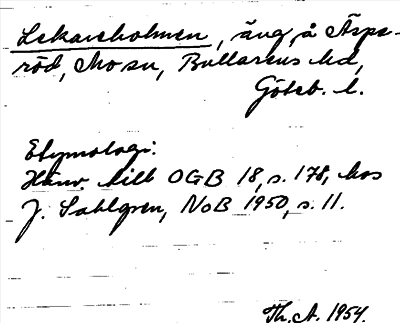 Lekareholmen, äng å Äspe-
röd, Mo sn, Bullarens hd,
Göteb. l.
Etymologi:
Hänv. till OGB 18, s. 178, hos
J. Sahlgren, NoB 1950, s. 11.
Th. A. 1954.